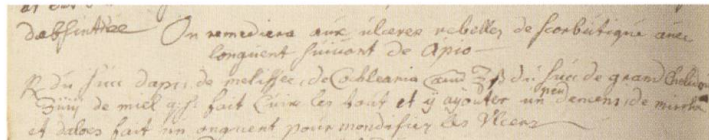 dabsinthe On remediera aux ulceres rebelles de scorbutique avec
longuent suivant de Apio
R du succ dapii, de melisse, de Cochlearia du succ de grand
de miel q.s. fait Cuire les tout et y ajouter un peu dencens, de mirrhe
et daloes fait un onguent pour mondifier les Ulceres